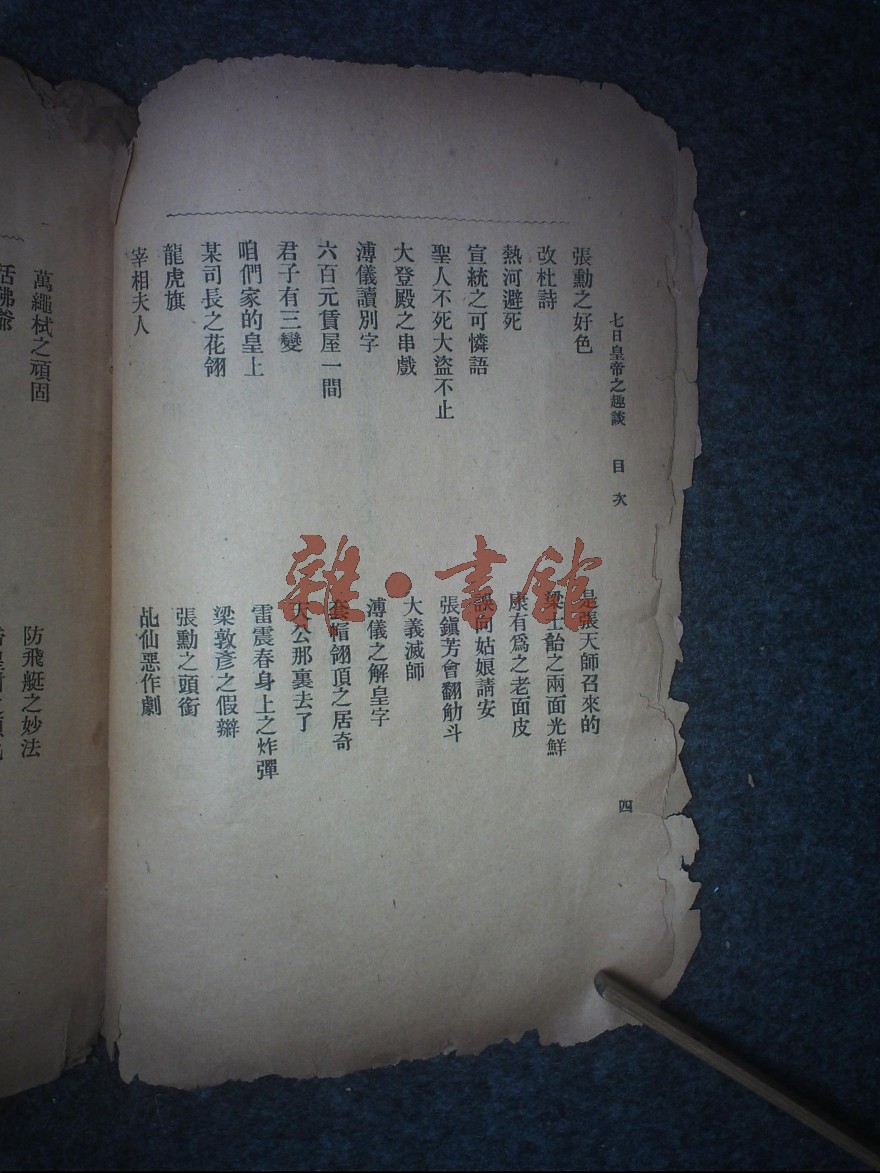 七日皇帝之趣談 目次 四
張勳之好色
是張天師召來的
改杜詩
梁士詒之兩面光鮮
熱河避死
康有爲之老面皮
宣統之可憐語
誤向姑娘請安
聖人不死大盜不止
張鎭芳會翻觔斗
大登殿之串戲
大義滅師
溥儀讀別字
溥儀之解皇字
六百元賃屋一間
套帽翎頂之居奇
君子有三變
天公那裏去了
咱們家的皇上
雷震春身上之炸彈
某司長之花翎
梁敦彥之假辮
龍虎旗
張勳之頭銜
宰相夫人
乩仙惡作劇
萬繩栻之頑固
防飛艇之妙法
活佛爺
雜·書館